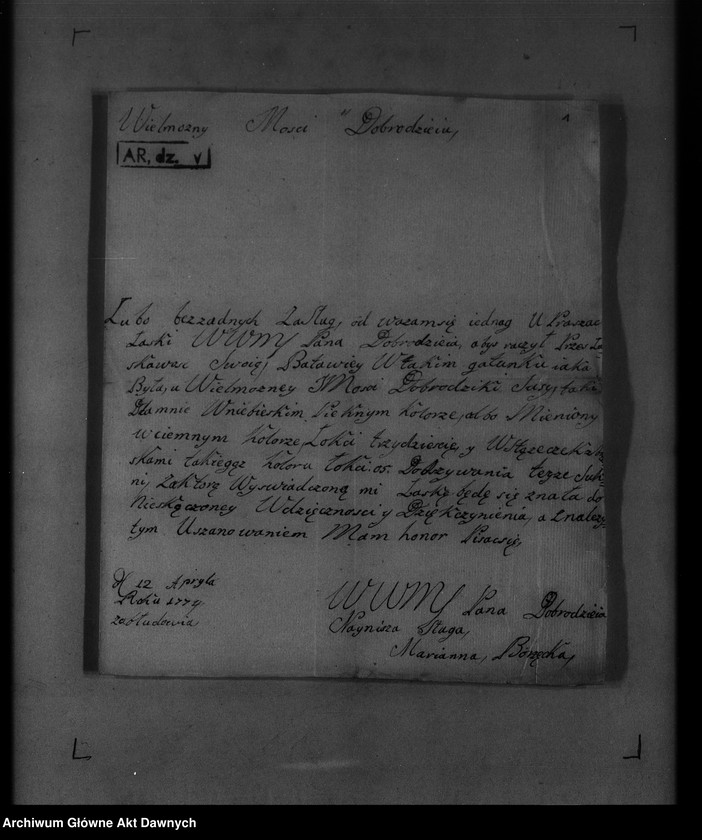 Wielmozny Mosci Dobrodzieiu,
1
AR. dz. V
Lubo bezzadnych Zasług, od wazamsię iednag Upraszac
Łaski WWMJ Pana Dobrodzieia, abys raczył Przez Ła
skawsc Swoię Batawięy Wtakim gatunku iaka
Była, u Wielmozney JMosci Dobrodziki Susy, taki
Dlamnie Wniebieskim Pieknym kolorze, albo Mieniony
wciemnym kolorze, Łokci trzydziescię, y Wstązeczek
skami takiegoz koloru łokci 08. Dobszywania teyze Suk
ni, Zaktorą Wyswiadczoną mi Łaskę będę się znała do
Nieskączoney Wdzięcznosci y Dziękczynienia, a Znalezy
tym Uszanowaniem Mam honor Pisacsię,
D 12 Apryla
Roku 1774
zabłudowia
WWMJ Pana Dobrodzieia
Naynisza Sługa,
Marianna,
Archiwum Główne Akt Dawnych